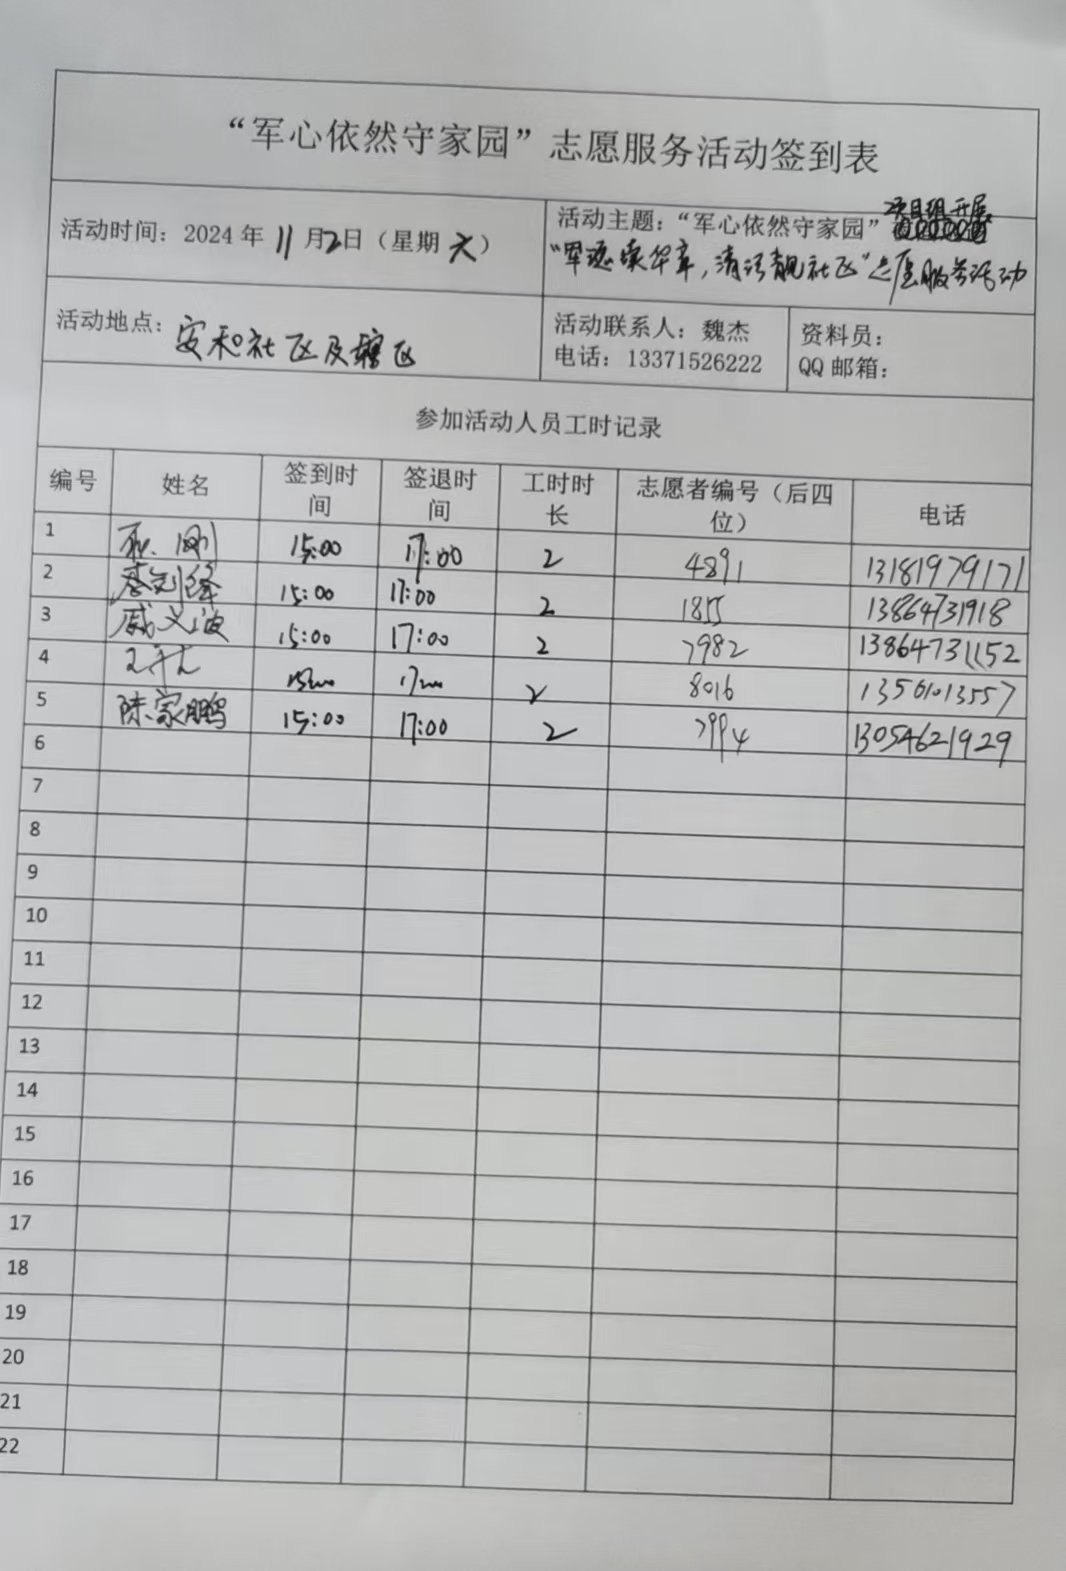 “军心依然守家园”志愿服务活动签到表
活动时间：2024年11月2日（星期六）
活动主题：“军心依然守家园”项目组开展
章，清洁靓社区”志愿服务活动
活动地点：安和社区及辖区
活动联系人：魏杰
电话：13371526222
资料员：
QQ邮箱：
参加活动人员工时记录
编号 姓名 签到时间 签退时间 工时时长 志愿者编号（后四位） 电话
1 刚 15:00 17:00 2 4891 13181979171
2 15:00 17:00 2 1855 13864731918
3 戚义波 15:00 17:00 2 7982 13864731152
4 2 8016 13561013557
5 陈家鹏 15:00 17:00 2 7994 13054621929
6
7
8
9
10
11
12
13
14
15
16
17
18
19
20
21
22